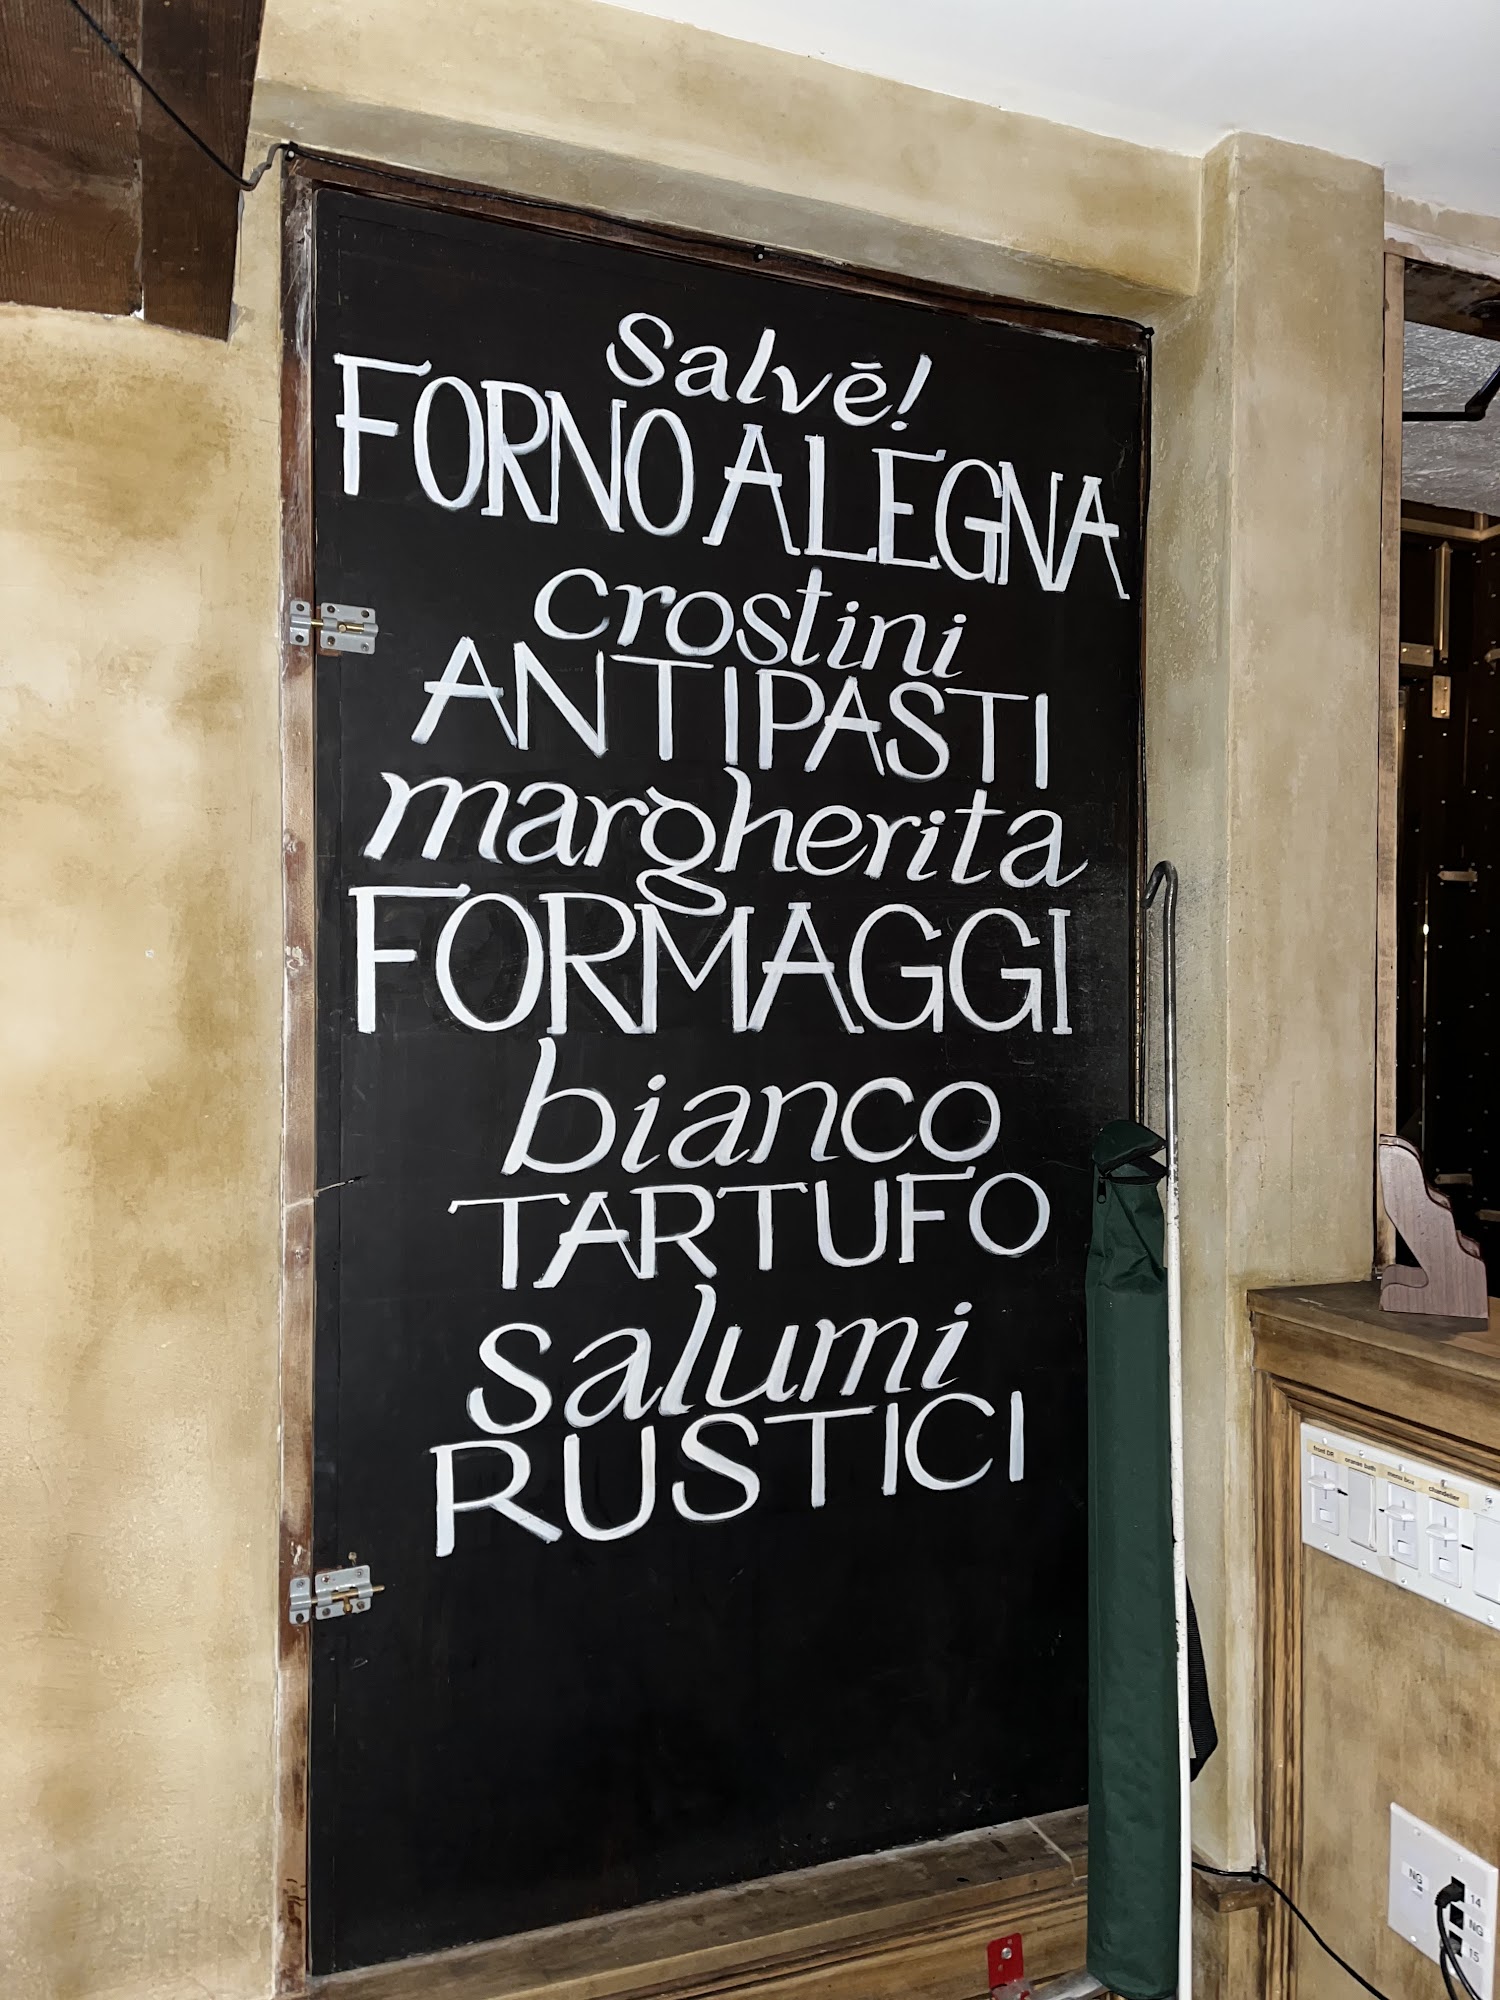 salvē!
FORNO A LEGNA
crostini
ANTIPASTI
margherita
FORMAGGI
bianco
TARTUFO
salumi
RUSTICI
front DR
orange bath
menu box
chandelier
NG
14
NG
15